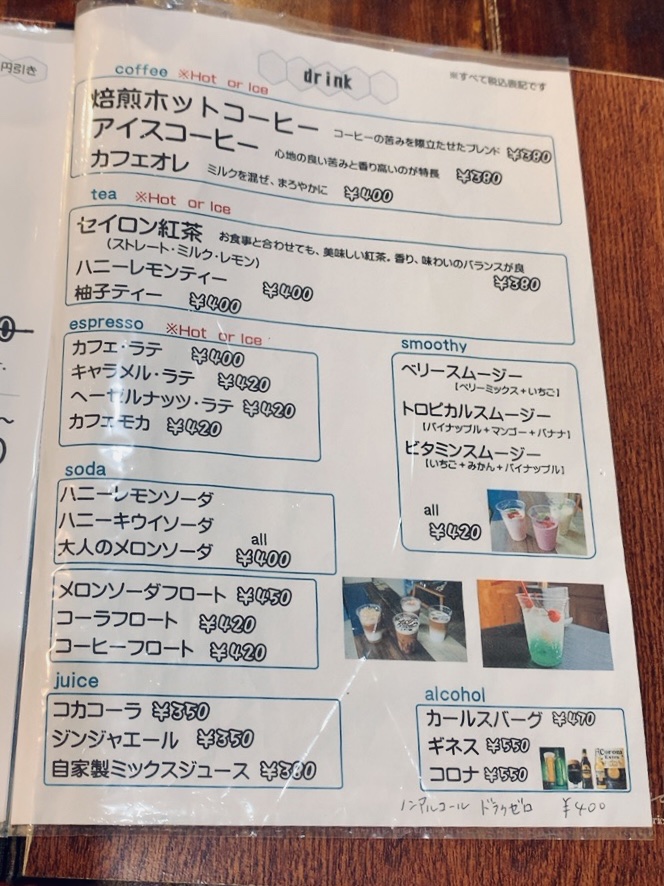 円引き
drink
※すべて税込表記です
coffee ※Hot or Ice
焙煎ホットコーヒー コーヒーの苦みを際立たせたブレンド ¥380
アイスコーヒー 心地の良い苦みと香り高いのが特長 ¥380
カフェオレ ミルクを混ぜ、まろやかに ¥400
tea ※Hot or Ice
セイロン紅茶 お食事と合わせても、美味しい紅茶。香り、味わいのバランスが良
(ストレート・ミルク・レモン) ¥380
ハニーレモンティー ¥400
柚子ティー ¥400
espresso ※Hot or Ice
カフェ・ラテ ¥400
キャラメル・ラテ ¥420
ヘーゼルナッツ・ラテ ¥420
カフェモカ ¥420
smoothy
ベリースムージー
[ベリーミックス+いちご]
トロピカルスムージー
[パイナップル+マンゴー+バナナ]
ビタミンスムージー
[いちご+みかん+パイナップル]
all
¥420
soda
ハニーレモンソーダ
ハニーキウイソーダ
大人のメロンソーダ
all
¥400
メロンソーダフロート ¥450
コーラフロート ¥420
コーヒーフロート ¥420
juice
コカコーラ ¥350
ジンジャエール ¥350
自家製ミックスジュース ¥380
alcohol
カールスバーグ ¥470
ギネス ¥550
コロナ ¥550
Corona
ノンアルコール ドラクゼロ ¥400